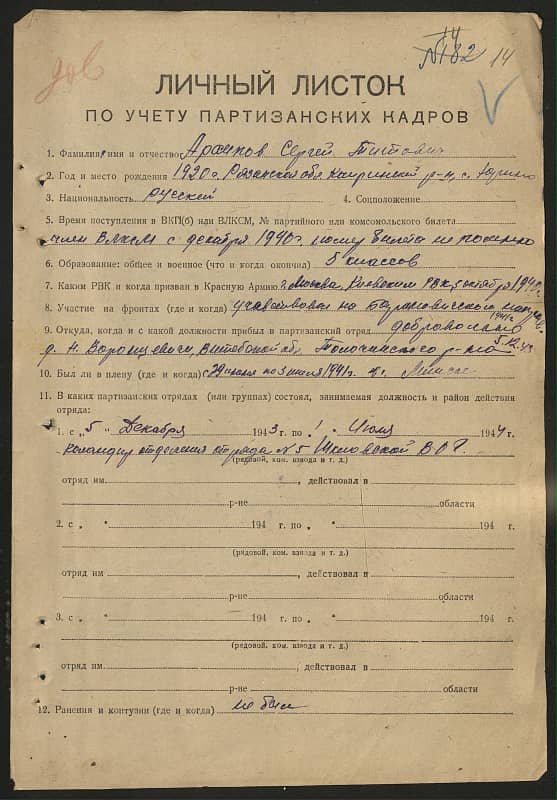 14
№182 14
ЛИЧНЫЙ ЛИСТОК
ПО УЧЕТУ ПАРТИЗАНСКИХ КАДРОВ
1. Фамилия, имя и отчество Архипов Сергей Титович
2. Год и место рождения 1920 г. Рязанской обл. р-н, с.
3. Национальность русский 4. Соцположение
5. Время поступления в ВКП(б) или ВЛКСМ, № партийного или комсомольского билета
член ВЛКСМ с декабря 1940г. номер билета не
6. Образование: общее и военное (что и когда окончил) 5 классов
7. Каким РВК и когда призван в Красную Армию г. Москва, Киевским РВК, 5 октября 1940г.
8. Участие на фронтах (где и когда) участвовал на Барановичском 1941г.
9. Откуда, когда и с какой должности прибыл в партизанский отряд добровольно
д. Н. Воронцевичи, Витебской обл. Толочинского р-на 5.12.43
10. Был ли в плену (где и когда) с 29 июня по 3 июля 1941г. г. Минск
11. В каких партизанских отрядах (или группах) состоял, занимаемая должность и район действия
отряда:
1. с „5" Декабря 1943 г. по 1 Июля 1944 г.
командир отделения отряда №5 Шкловской ВОГ.
(рядовой, ком. взвода и т. д.)
отряд им , действовал в
р-не области
2. с „ " 194 г. по „ " 194 г.
(рядовой, ком. взвода и т. д.)
отряд им , действовал в
р-не области
3. с „ " 194 г. по „ " 194 г.
(рядовой, ком. взвода и т. д.)
отряд им , действовал в
р-не области
12. Ранения и контузии (где и когда) не был